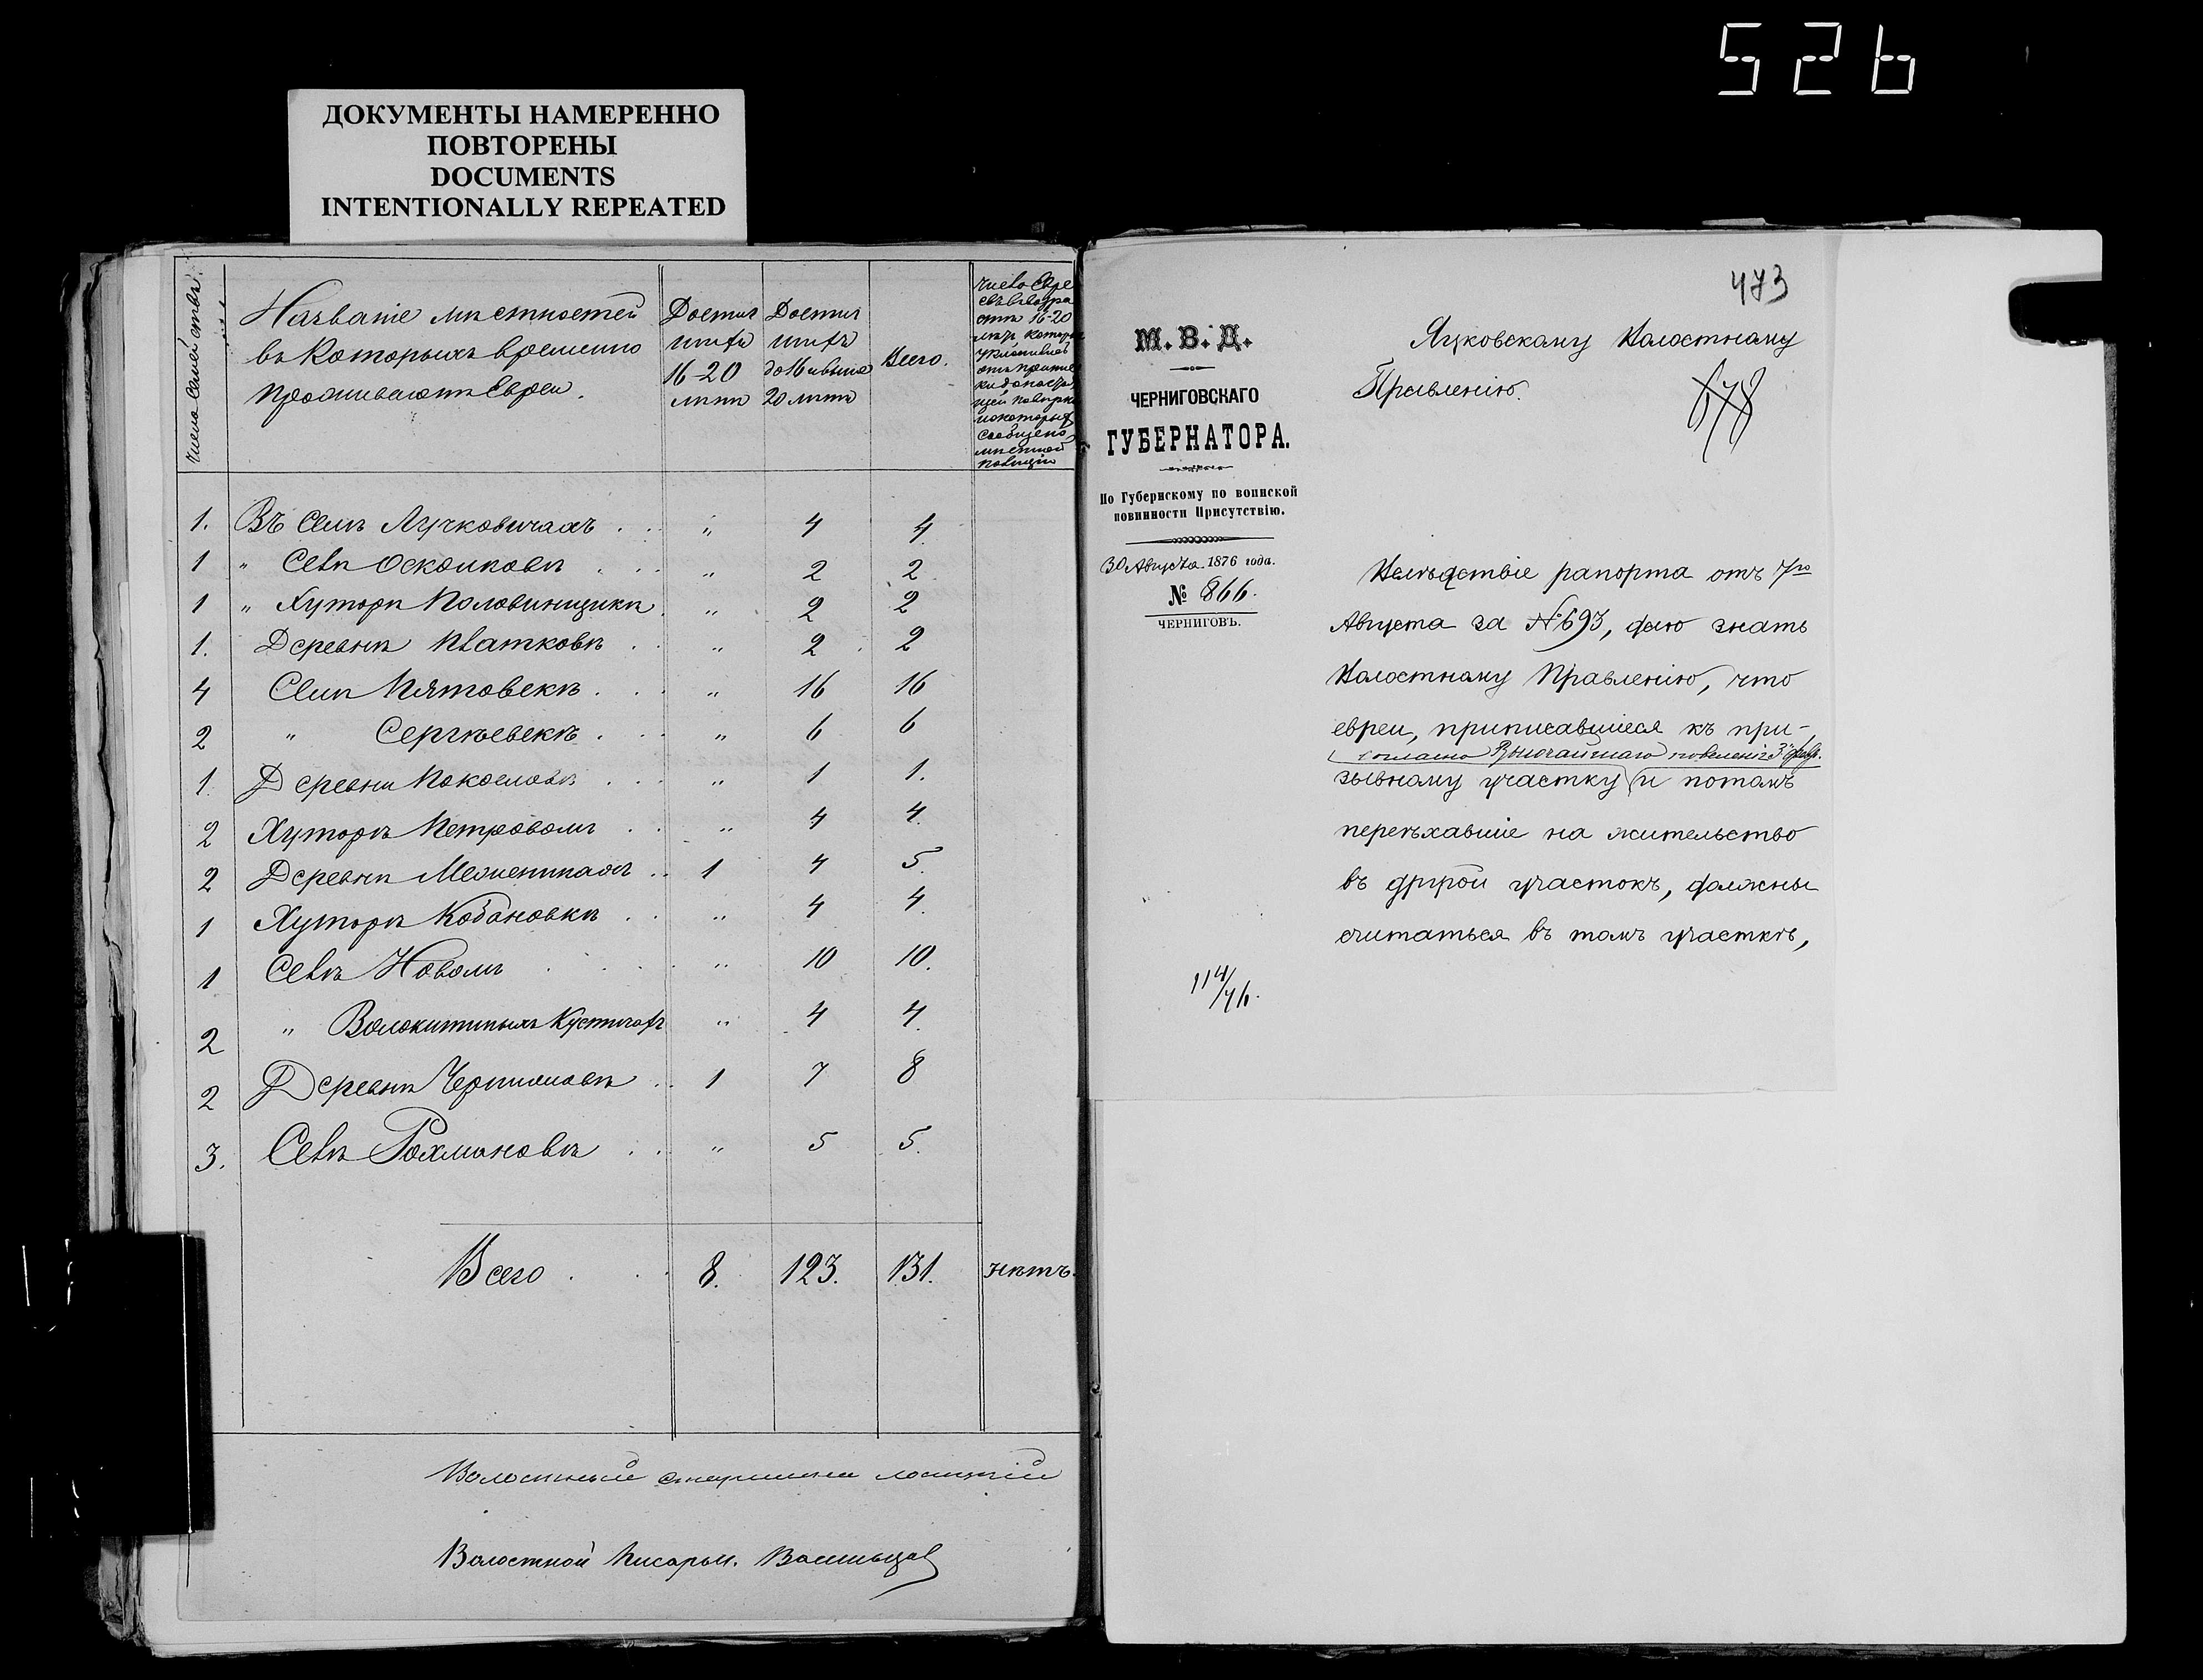 526
ДОКУМЕНТЫ НАМЕРЕННО
ПОВТОРЕНЫ
DOCUMENTS
INTENTIONALLY REPEATED
Число семействъ.
Названіе мѣстностей
въ Которыхъ временно
проживаютъ Евреи.
Достиг
шихъ
16-20
лѣтъ
Достиг
шихъ
до 16 и выше
20 лѣтъ
Всего.
Число Евре
евъ возра
ста 16-20
лѣтъ, которые
уклонились
отъ приписки
сообщено
мѣстной
полиціи
1. Въ Селѣ Лучковичахъ . . " 4 4.
1 " Селѣ Осколковѣ . . " 2 2.
1 " Хуторѣ Половинщикѣ . " 2 2
1. Деревнѣ Квятковѣ . . " 2 2
4 Селѣ Пятовскѣ . . " 16 16
2 " Сергѣевскѣ . . " 6 6
1. Деревнѣ . . " 1 1.
2 Хуторѣ Петровомъ . . " 4 4.
2 Деревнѣ Мельникахъ . . 1 4 5.
1 Хуторѣ Кобановкѣ . . " 4 4.
1 Селѣ Новомъ . . . " 10 10.
2 " Кустичахъ " 4 4.
2 Деревнѣ . . 1 7 8
3. Селѣ Рохмановѣ . . " 5 5.
Всего . . . 8. 123. 131. нѣтъ.
Волостный старшина
Волостной писарь
473
М. В. Д.
ЧЕРНИГОВСКАГО
ГУБЕРНАТОРА.
По Губернскому по воинской
повинности Присутствію.
30 Августа 1876 года.
№ 866.
ЧЕРНИГОВЪ.
114/76.
Волостному
Правленію.
678
Вслѣдствіе рапорта отъ 7го
Августа за №693, даю знать
Волостному Правленію, что
евреи, приписавшіеся къ при-
согласно Высочайшаго повеленія 3 февр.
зывному участку и потомъ
переѣхавшіе на жительство
въ другой участокъ, должны
считаться въ томъ участкѣ,